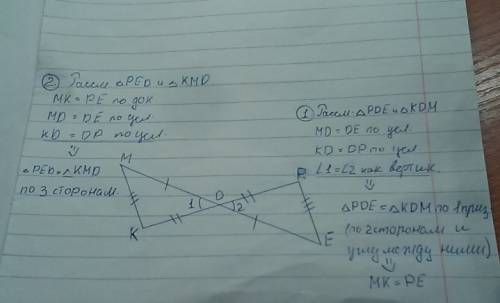 ② Рассм. △PED и △KMD
MK = PE по док
MD = DE по усл
KD = DP по усл
⇓
△PED = △KMD
по 3 сторонам.
① Рассм. △PDE и △KDM
MD = DE по усл.
KD = DP по усл.
∠1 = ∠2 как вертик.
⇓
△PDE = △KDM по 1 приз
(по 2 сторонам и
углу между ними)
⇓
MK = PE
M
D
1
2
K
P
E